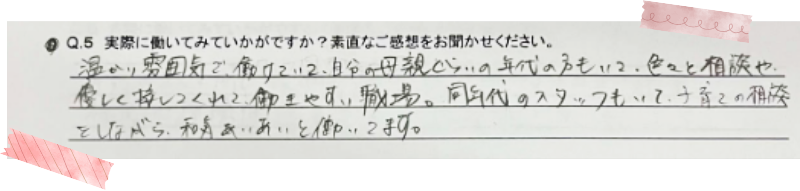 Q.5 実際に働いてみていかがですか？素直なご感想をお聞かせください。
温かい雰囲気で働けていて、自分の母親ぐらいの年代の方もいて、色々と相談や、
優しく接してくれて働きやすい職場。同年代のスタッフもいて、子育ての相談
をしながら、和気あいあいと働いてます。